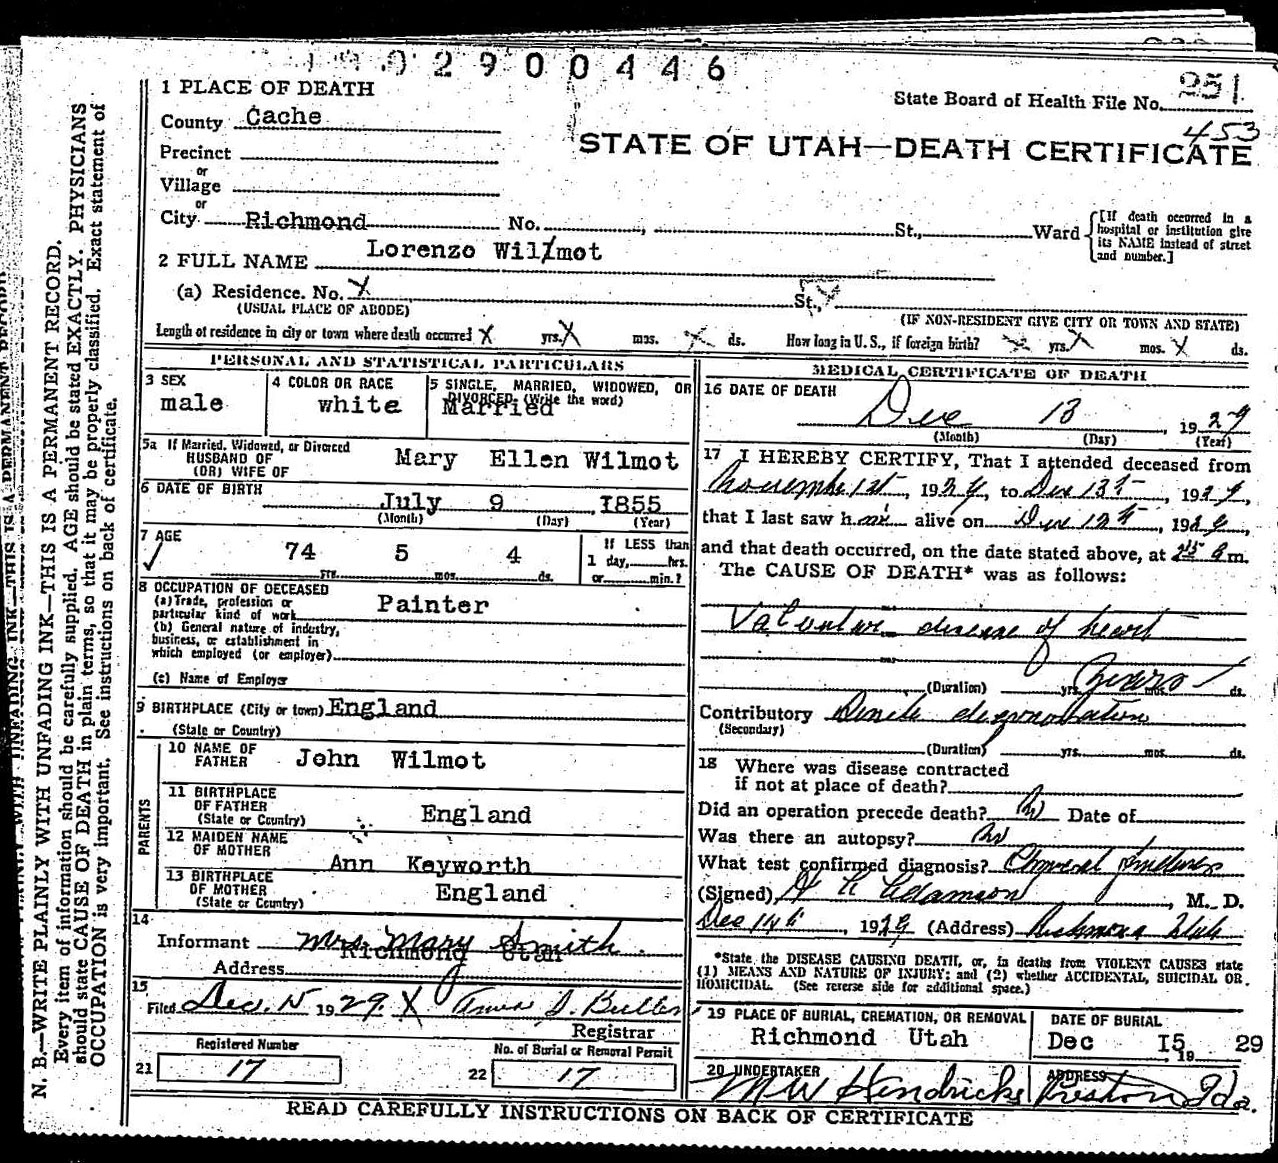 2900446
1 PLACE OF DEATH
State Board of Health File No. 251
453
County Cache
STATE OF UTAH—DEATH CERTIFICATE
Precinct
or
Village
or
City Richmond No. , St., Ward
[If death occurred in a hospital or institution give its NAME instead of street and number.]
2 FULL NAME Lorenzo Wilmot
(a) Residence. No. X St., X
(USUAL PLACE OF ABODE) (IF NON-RESIDENT GIVE CITY OR TOWN AND STATE)
Length of residence in city or town where death occurred X yrs. X mos. X ds. How long in U. S., if foreign birth? X yrs. X mos. X ds.
PERSONAL AND STATISTICAL PARTICULARS
3 SEX male
4 COLOR OR RACE white
5 SINGLE, MARRIED, WIDOWED, OR DIVORCED (Write the word)
Married
5a If Married, Widowed, or Divorced
HUSBAND OF
(OR) WIFE OF Mary Ellen Wilmot
6 DATE OF BIRTH July 9 1855
(Month) (Day) (Year)
7 AGE
74 yrs. 5 mos. 4 ds.
If LESS than
1 day, hrs.
or min.?
8 OCCUPATION OF DECEASED
(a) Trade, profession or
particular kind of work Painter
(b) General nature of industry,
business, or establishment in
which employed (or employer)
(c) Name of Employer
9 BIRTHPLACE (City or town) England
(State or Country)
PARENTS
10 NAME OF
FATHER John Wilmot
11 BIRTHPLACE
OF FATHER
(State or Country) England
12 MAIDEN NAME
OF MOTHER
Ann Keyworth
13 BIRTHPLACE
OF MOTHER
(State or Country) England
14
Informant Mrs. Mary Smith.
Address Richmond Utah
15
Filed Dec. 15 1929. X
Registrar
Registered Number
21 17
No. of Burial or Removal Permit
22 17
MEDICAL CERTIFICATE OF DEATH
16 DATE OF DEATH
Dec 13, 1929
(Month) (Day) (Year)
17 I HEREBY CERTIFY, That I attended deceased from
November 1st, 1929, to Dec 13th, 1929,
that I last saw him alive on Dec 12th, 1929,
and that death occurred, on the date stated above, at m.
The CAUSE OF DEATH* was as follows:
Valvular disease of heart
(Duration) yrs. Years mos. ds.
Contributory Senile degeneration
(Secondary)
(Duration) yrs. mos. ds.
18 Where was disease contracted
if not at place of death?
Did an operation precede death? No Date of
Was there an autopsy? No
What test confirmed diagnosis?
(Signed) Adamson, M. D.
Dec 14th, 1929 (Address) Richmond Utah
*State the DISEASE CAUSING DEATH, or, in deaths from VIOLENT CAUSES state
(1) MEANS AND NATURE OF INJURY; and (2) whether ACCIDENTAL, SUICIDAL OR
HOMICIDAL. (See reverse side for additional space.)
19 PLACE OF BURIAL, CREMATION, OR REMOVAL
Richmond Utah
DATE OF BURIAL
Dec 15, 19 29
20 UNDERTAKER
M W Hendricks
ADDRESS
Preston Ida.
READ CAREFULLY INSTRUCTIONS ON BACK OF CERTIFICATE
N. B.—WRITE PLAINLY WITH UNFADING INK—THIS IS A PERMANENT RECORD.
Every item of information should be carefully supplied. AGE should be stated EXACTLY. PHYSICIANS
should state CAUSE OF DEATH in plain terms, so that it may be properly classified. Exact statement of
OCCUPATION is very important. See instructions on back of certificate.